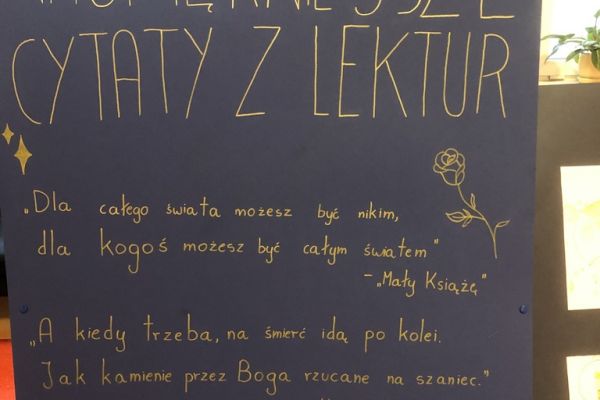 CYTATY Z LEKTUR
„Dla całego świata możesz być nikim,
dla kogoś możesz być całym światem"
- „Mały Książę"
„A kiedy trzeba, na śmierć idą po kolei.
Jak kamienie przez Boga rzucane na szaniec."